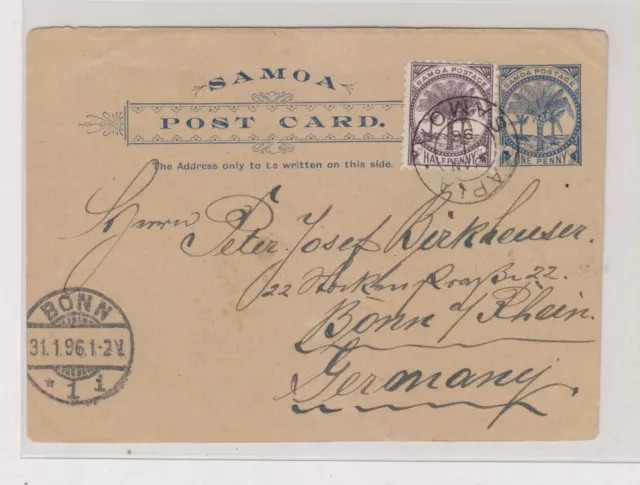 SAMOA
POST CARD.
The Address only to be written on this side.
SAMOA POSTAGE
HALFPENNY
SAMOA POSTAGE
ONE PENNY
APIA
SAMOA
96
Herrn Peter Josef Birkheuser.
22 Stockenstraße 22.
Bonn a/Rhein.
Germany.
BONN
31.1.96.1-2V.
* 1 i